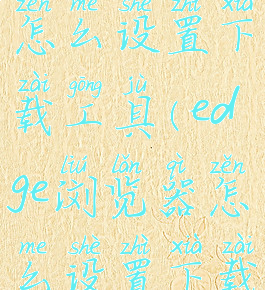 zěn me shè zhì xià
怎么设置下
zài gōng jù
载工具(ed
liú lǎn qì zěn
ge浏览器怎
me shè zhì xià zài
么设置下载